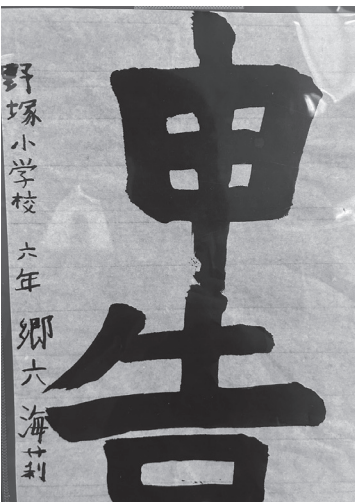 申告
野塚小学校 六年 郷六 海莉